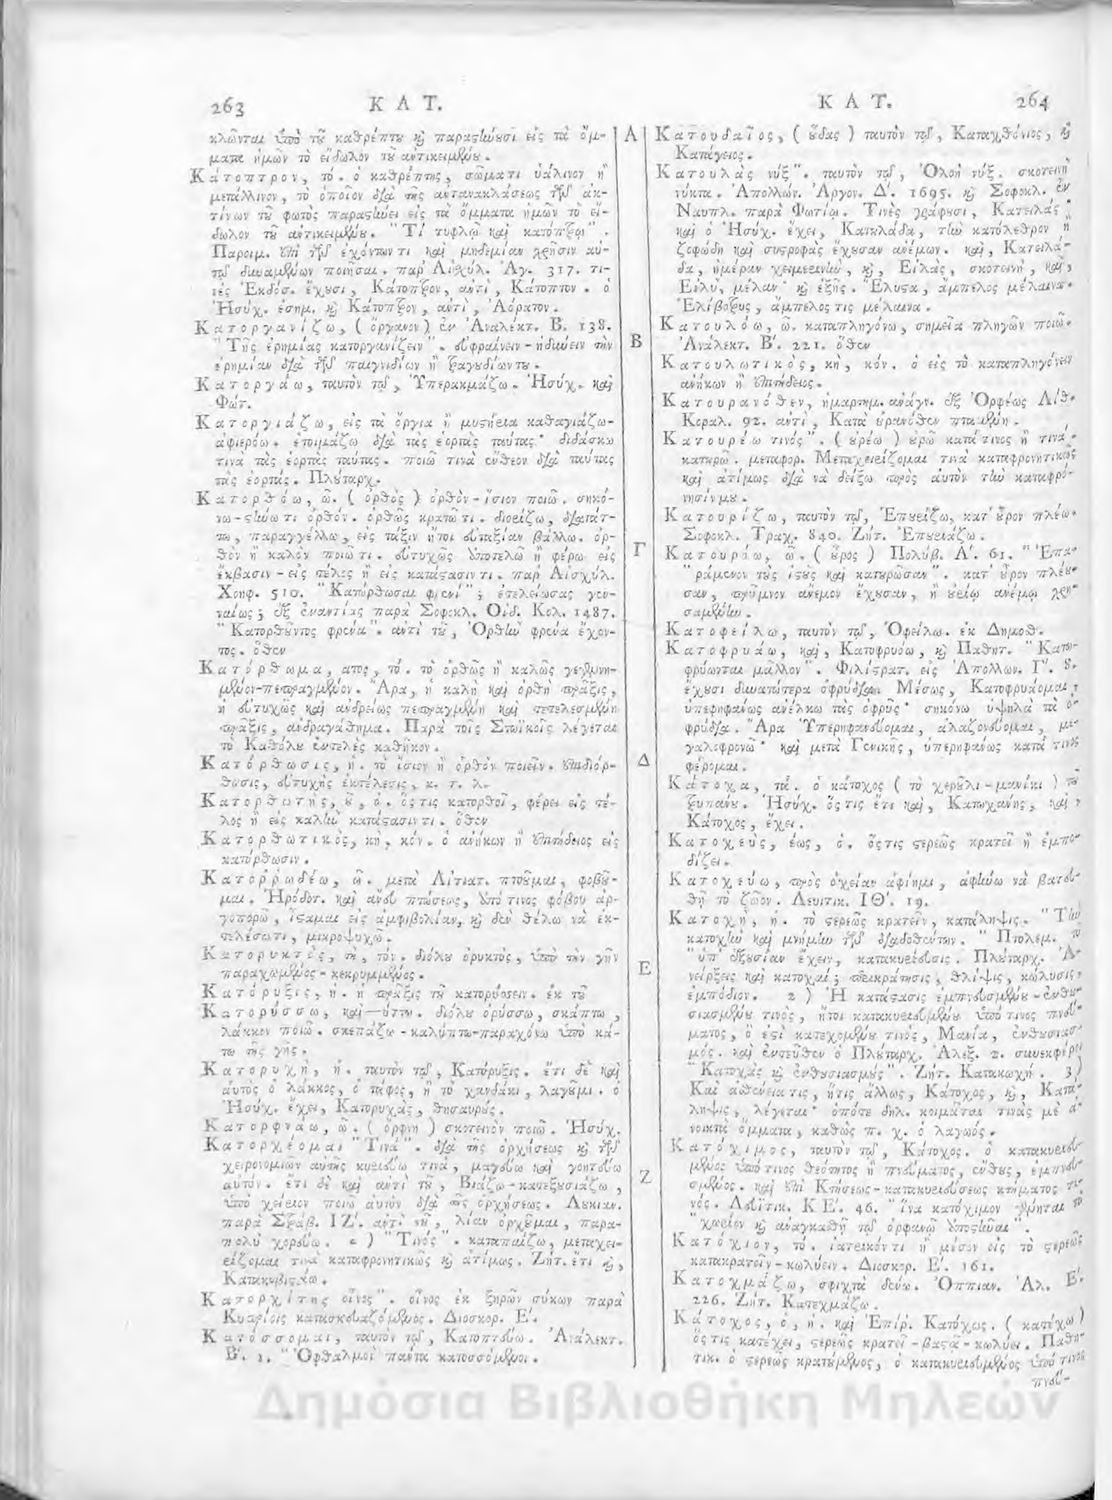 263 ΚΑΤ.
κλῶνται ὑπὸ τοῦ καθρέπτου καὶ παραστήνουσι εἰς τὰ ὄμ-
ματα ἡμῶν τὸ εἴδωλον τοῦ ἀντικειμένου.
Κάτοπτρον, τό. ὁ καθρέπτης, σώματι ὑάλινον ἢ
μετάλλινον, τὸ ὁποῖον διὰ τῆς αὐτανακλάσεως τῶν ἀκ-
τίνων τοῦ φωτὸς παραστήνει εἰς τὰ ὄμματα ἡμῶν τὸ εἴ-
δωλον τοῦ ἀντικειμένου. "Τί τυφλῷ καὶ κατόπτρῳ".
Παροιμ. ἐπὶ τῶν ἐχόντων τι καὶ μηδεμίαν χρῆσιν αὐ-
τοῦ δυναμένων ποιῆσαι. παρ' Αἰσχύλ. Ἀγ. 317. τι-
νὲς Ἐκδόσ. ἔχουσι, Κάτοπτρον, ἀντί, Κάτοπτον. ὁ
Ἡσύχ. ἐσημ. καὶ Κάτοπτρον, ἀντί, Ἀόρατον.
Κατοργανίζω, (ὄργανον) ἐν Ἀναλέκτ. Β. 138.
"Τῆς ἐρημίας κατοργανίζειν". εὐφραίνειν-ἡδύνειν τὴν
ἐρημίαν διὰ τῶν παιγνιδίων ἢ τραγουδίωντου.
Κατοργάω, ταυτὸν τῷ, Ὑπερακμάζω. Ἡσύχ. καὶ
Φώτ.
Κατοργιάζω, εἰς τὰ ὄργια ἢ μυστήρια καθαγιάζω-
ἀφιερόω. ἑτοιμάζω διὰ τὰς ἑορτὰς ταύτας. διδάσκω
τινα τὰς ἑορτὰς ταύτας. ποιῶ τινὰ ἔνθεον διὰ ταύτας
τὰς ἑορτάς. Πλούταρχ.
Κατορθόω, ῶ. (ὀρθὸς) ὀρθὸν-ἴσιον ποιῶ. σηκό-
νω-στήνω τι ὀρθόν. ὀρθῶς κρατῶ τι. διορίζω, διατάτ-
τω, παραγγέλλω, εἰς τάξιν ἤτοι εὐταξίαν βάλλω. ὀρ-
θὸν ἢ καλὸν ποιῶ τι. εὐτυχῶς ἀποτελῶ ἢ φέρω εἰς
ἔκβασιν-εἰς τέλος ἢ εἰς κατάστασίν τι. παρ' Αἰσχύλ.
Χοηφ. 510. "Κατώρθωσαι φρενί"; ἐτελείωσας γεν-
ναίως; ἐξ ἐναντίας παρὰ Σοφοκλ. Οἰδ. Κολ. 1487.
"Κατορθοῦντος φρενα". ἀντὶ τοῦ, Ὀρθὴν φρένα ἔχον-
τος. ὅθεν
Κατόρθωμα, ατος, τό. τὸ ὀρθῶς ἢ καλῶς γεγενη-
μένον-πεπραγμένον. Ἄρα, ἡ καλὴ καὶ ὀρθὴ πρᾶξις,
ἡ εὐτυχῶς καὶ ἀνδρείως πεπραγμένη καὶ τετελεσμένη
πρᾶξις, ἀνδραγάθημα. Παρὰ τοῖς Στωϊκοῖς λέγεται
τὸ Καθόλου ἐντελὲς καθῆκον.
Κατόρθωσις, ἡ. τὸ ἴσιον ἢ ὀρθὸν ποιεῖν. ἐπιδιόρ-
θωσις, εὐτυχὴς ἐκτέλεσις, κ. τ. λ.
Κατορθωτής, οῦ, ὁ. ὅςτις κατορθοῖ, φέρει εἰς τέ-
λος ἢ εἰς καλὴν κατάστασίν τι. ὅθεν
Κατορθωτικός, κὴ, κόν. ὁ ἀνήκων ἢ ἐπιτήδειος εἰς
κατόρθωσιν.
Κατορῤωδέω, ῶ. μετὰ Αἰτιατ. πτοοῦμαι, φοβοῦ-
μαι. Ἡρόδοτ. καὶ ἄνευ πτώσεως, ὑπό τινος φόβου ἀρ-
γοπορῶ, ἵσταμαι εἰς ἀμφιβολίαν, καὶ δὲν θέλω νὰ ἐκ-
τελέσω τι, μικροψυχῶ.
Κατορυκτὸς, τὴ, τόν. διόλου ὀρυκτὸς, ὑπὸ τὴν γῆν
παραχωμένος-κεκρυμμένος.
Κατόρυξις, ἡ. ἡ πρᾶξις τοῦ κατορύσσειν. ἐκ τοῦ
Κατορύσσω, καὶ—ύττω. διόλου ὀρύσσω, σκάπτω,
λάκκον ποιῶ. σκεπάζω-καλύπτω-παραχόνω ὑπὸ κά-
τω τῆς γῆς.
Κατορυχὴ, ἡ. ταυτὸν τῷ, Κατόρυξις. ἔτι δὲ καὶ
αὐτὸς ὁ λάκκος, ὁ τάφος, ἢ τὸ χανδάκι, λαγοῦμι. ὁ
Ἡσύχ. ἔχει, Κατορυχὰς, θησαυρούς.
Κατορφνάω, ῶ. (ὄρφνη) σκοτεινὸν ποιῶ. Ἡσύχ.
Κατορχέομαι "Τινὰ". διὰ τῆς ὀρχήσεως καὶ τῶν
χειρονομιῶν αὐτῆς κυριεύω τινὰ, μαγεύω καὶ γοητεύω
αὐτόν. ἔτι δὲ καὶ ἀντὶ τοῦ, Βιάζω-κατεξουσιάζω,
ὑπὸ χεῖρον ποιῶ αὐτὸν διὰ τῆς ὀρχήσεως. Λουκιαν.
παρὰ Στράβ. ΙΖ'. ἀντὶ τοῦ, λίαν ὀρχοῦμαι, παρα-
πολὺ χορεύω. 2) "Τινὸς". καταπαίζω, μεταχει-
ρίζομαι τινὰ καταφρονητικῶς καὶ ἀτίμως. Ζήτ. ἔτι καὶ,
Κατακυβιστάω.
Κατορχίτης οἶνος". οἶνος ἐκ ξηρῶν σύκων παρὰ
Κυπρίοις κατασκευαζόμενος. Διοσκορ. Ε'.
Κατόσσομαι, ταυτὸν τῷ, Κατοπτεύω. Ἀνάλεκτ.
Β'. 1. "Ὀφθαλμοὶ πάντα κατοσσόμενοι.
Α
Β
Γ
Δ
Ε
Ζ
ΚΑΤ. 264
Κατουδαῖος, (οὖδας) ταυτὸν τῷ, Καταχθόνιος, καὶ
Κατάγειος.
Κατουλὰς νύξ". ταυτὸν τῷ, Ὀλοὴ νύξ. σκοτεινὴ
νύκτα. Ἀπολλων. Ἀργον. Δ'. 1695. καὶ Σοφοκλ. ἐν
Ναυπλ. παρὰ Φωτίῳ. Τινὲς γράφουσι, Κατειλάς
καὶ ὁ Ἡσύχ. ἔχει, Κατιλάδα, τὴν κατόλεθρον ἢ
ζοφώδη καὶ συστροφὰς ἔχουσαν ἀνέμων. καὶ, Κατειλά-
δα, ἡμέραν χειμερινὴν, καὶ, Εἰλὰς, σκοτεινὴ, καὶ,
Εἰλὺ, μέλαν καὶ ἑξῆς. Ἔλυστα, ἄμπελος μέλαινα.
Ἐλίβοτρυς, ἄμπελός τις μέλαινα.
Κατουλόω, ῶ. καταπληγόνω, σημεῖα πληγῶν ποιῶ.
Ἀνάλεκτ. Β'. 221. ὅθεν
Κατουλωτικὸς, κὴ, κόν. ὁ εἰς τὸ καταπληγόνειν
ἀνήκων ἢ ἐπιτήδειος.
Κατουρανόθεν, ἡμαρτημ. ἀνάγν. ἐξ Ὀρφέως Λίθ.
Κοραλ. 92. ἀντὶ, Κατὰ οὐρανόθεν πταμένη.
Κατουρέω τινός". (οὐρέω) οὐρῶ κατά τινος ἢ τινὰ-
κατουρῶ. μεταφορ. Μεταχειρίζομαι τινὰ καταφρονητικῶς
καὶ ἀτίμως διὰ νὰ δείξω πρὸς αὐτὸν τὴν καταφρό-
νησίν μου.
Κατουρίζω, ταυτὸν τῷ, Ἐπουρίζω, κατ' οὖρον πλέω.
Σοφοκλ. Τραχ. 840. Ζήτ. Ἐπουριάζω.
Κατουρόω, ῶ. (οὖρος) Πολύβ. Α'. 61. "Ἐπα-
"ράμενοι τοὺς ἱστοὺς καὶ κατουρῶσαν". κατ' οὖρον πλέου-
σαν, πρύμνον ἄνεμον ἔχουσαν, ἢ οὐρίῳ ἀνέμῳ χρη-
σαμένην.
Κατοφείλω, ταυτὸν τῷ, Ὀφείλω. ἐκ Δημοσθ.
Κατοφρυάω, καὶ, Κατοφρυόω, καὶ Παθητ. "Κατω-
φρύωνται μᾶλλον". Φιλόστρατ. εἰς Ἀπολλων. Γ'. 8.
ἔχουσι δυνατώτερα ὀφρύδια. Μέσως, Κατοφρυάομαι,
ὑπερηφάνως ἀνέλκω τὰς ὀφρῦς σηκόνω ὑψηλὰ τὰ ὀ-
φρύδια. Ἄρα Ὑπερηφανεύομαι, ἀλαζονεύομαι, με-
γαλοφρονῶ καὶ μετὰ Γενικῆς, ὑπερηφάνως κατά τινος
φέρομαι.
Κάτοχα, τά. ὁ κάτοχος (τὸ χερούλι-μανίκι) τοῦ
τρυπάνου. Ἡσύχ. ὅςτις ἔτι καὶ, Κατωχάνης, καὶ,
Κάτοχος, ἔχει.
Κατοχεὺς, έως, ὁ. ὅςτις στερεῶς κρατεῖ ἢ ἐμπο-
δίζει.
Κατοχεύω, πρὸς ὀχείαν ἀφίημι, ἀφήνω νὰ βατευ-
θῇ τὸ ζῶον. Λευιτικ. ΙΘ'. 19.
Κατοχὴ, ἡ. τὸ στερεῶς κρατεῖν, κατάληψις. "Τὴν
κατοχὴν καὶ μνήμην τῶν διαδοθέντων." Πτολεμ. τὸ
"ὑπ' ἐξουσίαν ἔχειν, κατακυρίευσις. Πλούταρχ. Ἀ-
νείρξεις καὶ κατοχαί; περικράτησις, θλίψις, κώλυσις,
ἐμπόδιον. 2) Ἡ κατάστασις ἐμπνευσμένου-ἐνθου-
σιασμένου τινὸς, ἤτοι κατακυριευμένου ὑπό τινος πνεύ-
ματος, ὅ ἐστι κατεχομένου τινὸς, Μανία, ἐνθουσιασ-
μός. καὶ ἐντεῦθεν ὁ Πλούταρχ. Ἀλεξ. 2. συνεκφέρει
"Κατοχὰς καὶ ἐνθουσιασμούς". Ζήτ. Κατακωχή. 3)
Καὶ ἀσθένεια τις, ἥτις ἄλλως, Κάτοχος, καὶ, Κατά-
ληψις, λέγεται ὁπότε δηλ. κοιμᾶταί τινὰς μὲ ἀ-
νοικτὰ ὄμματα, καθὼς π. χ. ὁ λαγωός.
Κατόχιμος, ταυτὸν τῷ, Κάτοχος. ὁ κατακυριευ-
μένος ὑπό τινος θεότητος ἢ πνεύματος, ἔνθους, ἐμπνευ-
σμένος. καὶ ἐπὶ Κτήσεως-κατακυριεύσεως κτήματος τι-
νός. Λευϊτικ. ΚΕ'. 46. "ἵνα κατόχιμον γένηται τὸ
"χωρίον καὶ ἀναγκασθῇ τῷ ὀρφανῷ ἀποστῆναι".
Κατόχιον, τό. ἰατρικόν τι ἢ μέσον εἰς τὸ στερεῶς
κατακρατεῖν-κωλύειν. Διοσκορ. Ε'. 161.
Κατοχμάζω, σφιχτὰ δένω. Ὀππιαν. Ἁλ. Ε'.
226. Ζήτ. Κατεχμάζω.
Κάτοχος, ὁ, ἡ. καὶ Ἐπίρ. Κατόχως. (κατέχω)
ὅςτις κατέχει, στερεῶς κρατεῖ-βαστᾷ-κωλύει. Παθη-
τικ. ὁ στερεῶς κρατούμενος, ὁ κατακυριευμένος ὑπό τινος
πνεύ-
Δημόσια Βιβλιοθήκη Μηλεών